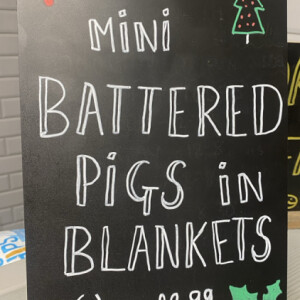 Mini
BATTERED
PiGS in
BLANKETS